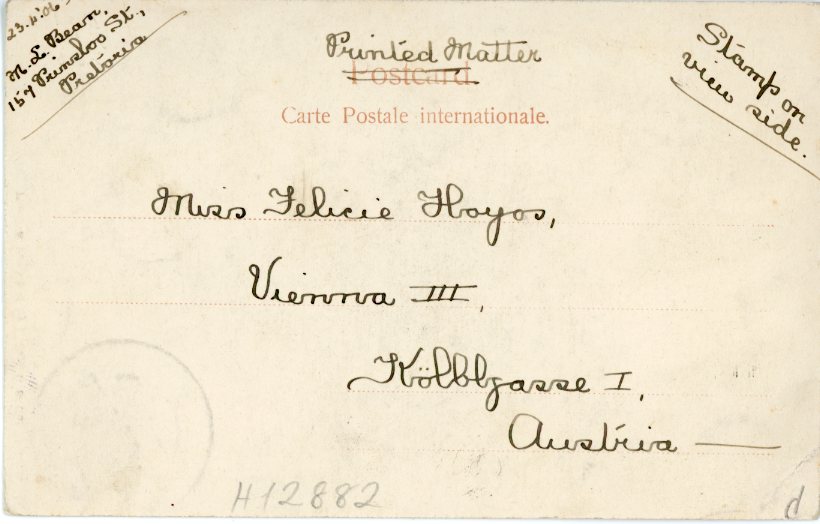 23.4.06
M. L. Bean,
157 Prinsloo St.,
Pretoria
Printed Matter
Postcard
Carte Postale internationale.
Stamp on
view side.
Miss Felicie Hoyos,
Vienna III,
Kölblgasse I,
Austria
H12882
d